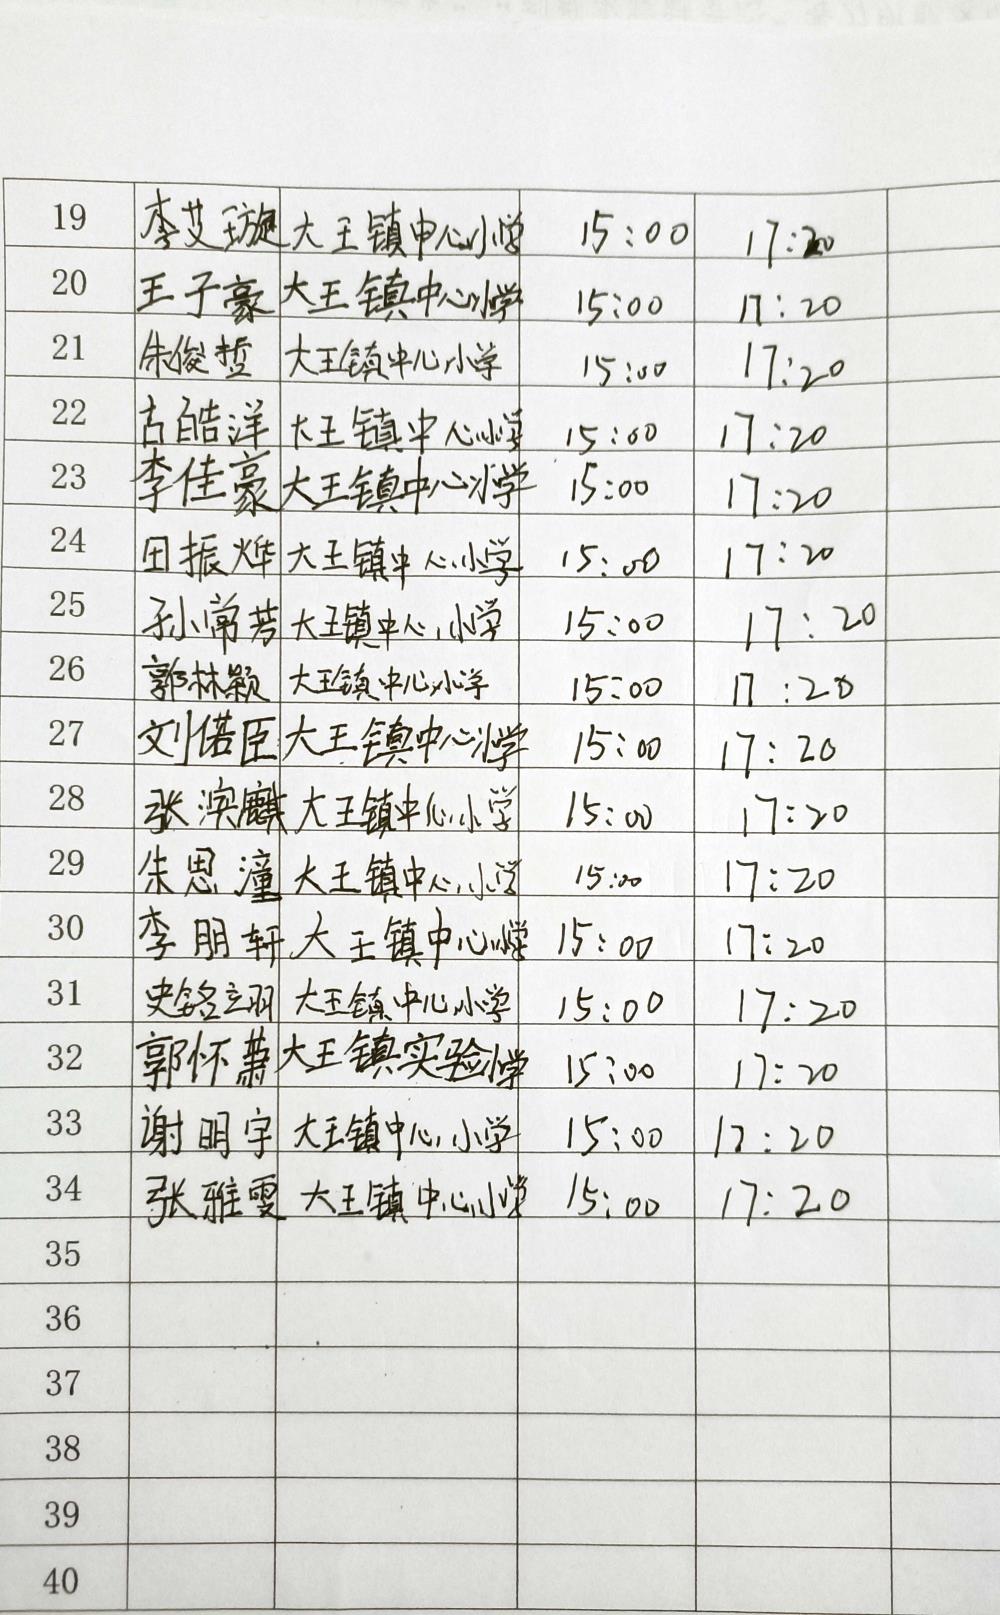 19 李艾璇 大王镇中心小学 15:00 17:20
20 王子豪 大王镇中心小学 15:00 17:20
21 朱俊哲 大王镇中心小学 15:00 17:20
22 古皓洋 大王镇中心小学 15:00 17:20
23 李佳豪 大王镇中心小学 15:00 17:20
24 田振烨 大王镇中心小学 15:00 17:20
25 孙常芳 大王镇中心小学 15:00 17:20
26 郭林颖 大王镇中心小学 15:00 17:20
27 刘偌臣 大王镇中心小学 15:00 17:20
28 张淏麒 大王镇中心小学 15:00 17:20
29 朱思潼 大王镇中心小学 15:00 17:20
30 李朋轩 大王镇中心小学 15:00 17:20
31 史铭翊 大王镇中心小学 15:00 17:20
32 郭怀萧 大王镇实验小学 15:00 17:20
33 谢明宇 大王镇中心小学 15:00 17:20
34 张雅雯 大王镇中心小学 15:00 17:20
35
36
37
38
39
40